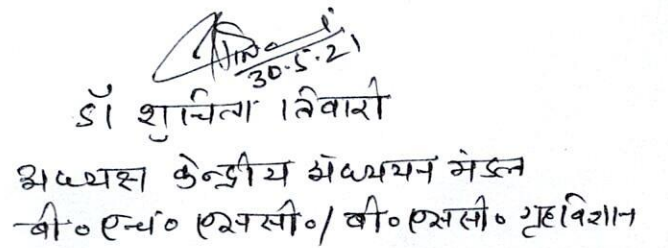 30.5.21
डॉ शुचिता तिवारी
अध्यक्ष केन्द्रीय अध्ययन मंडल
बी० एच० एससी०/ बी० एससी० गृहविज्ञान